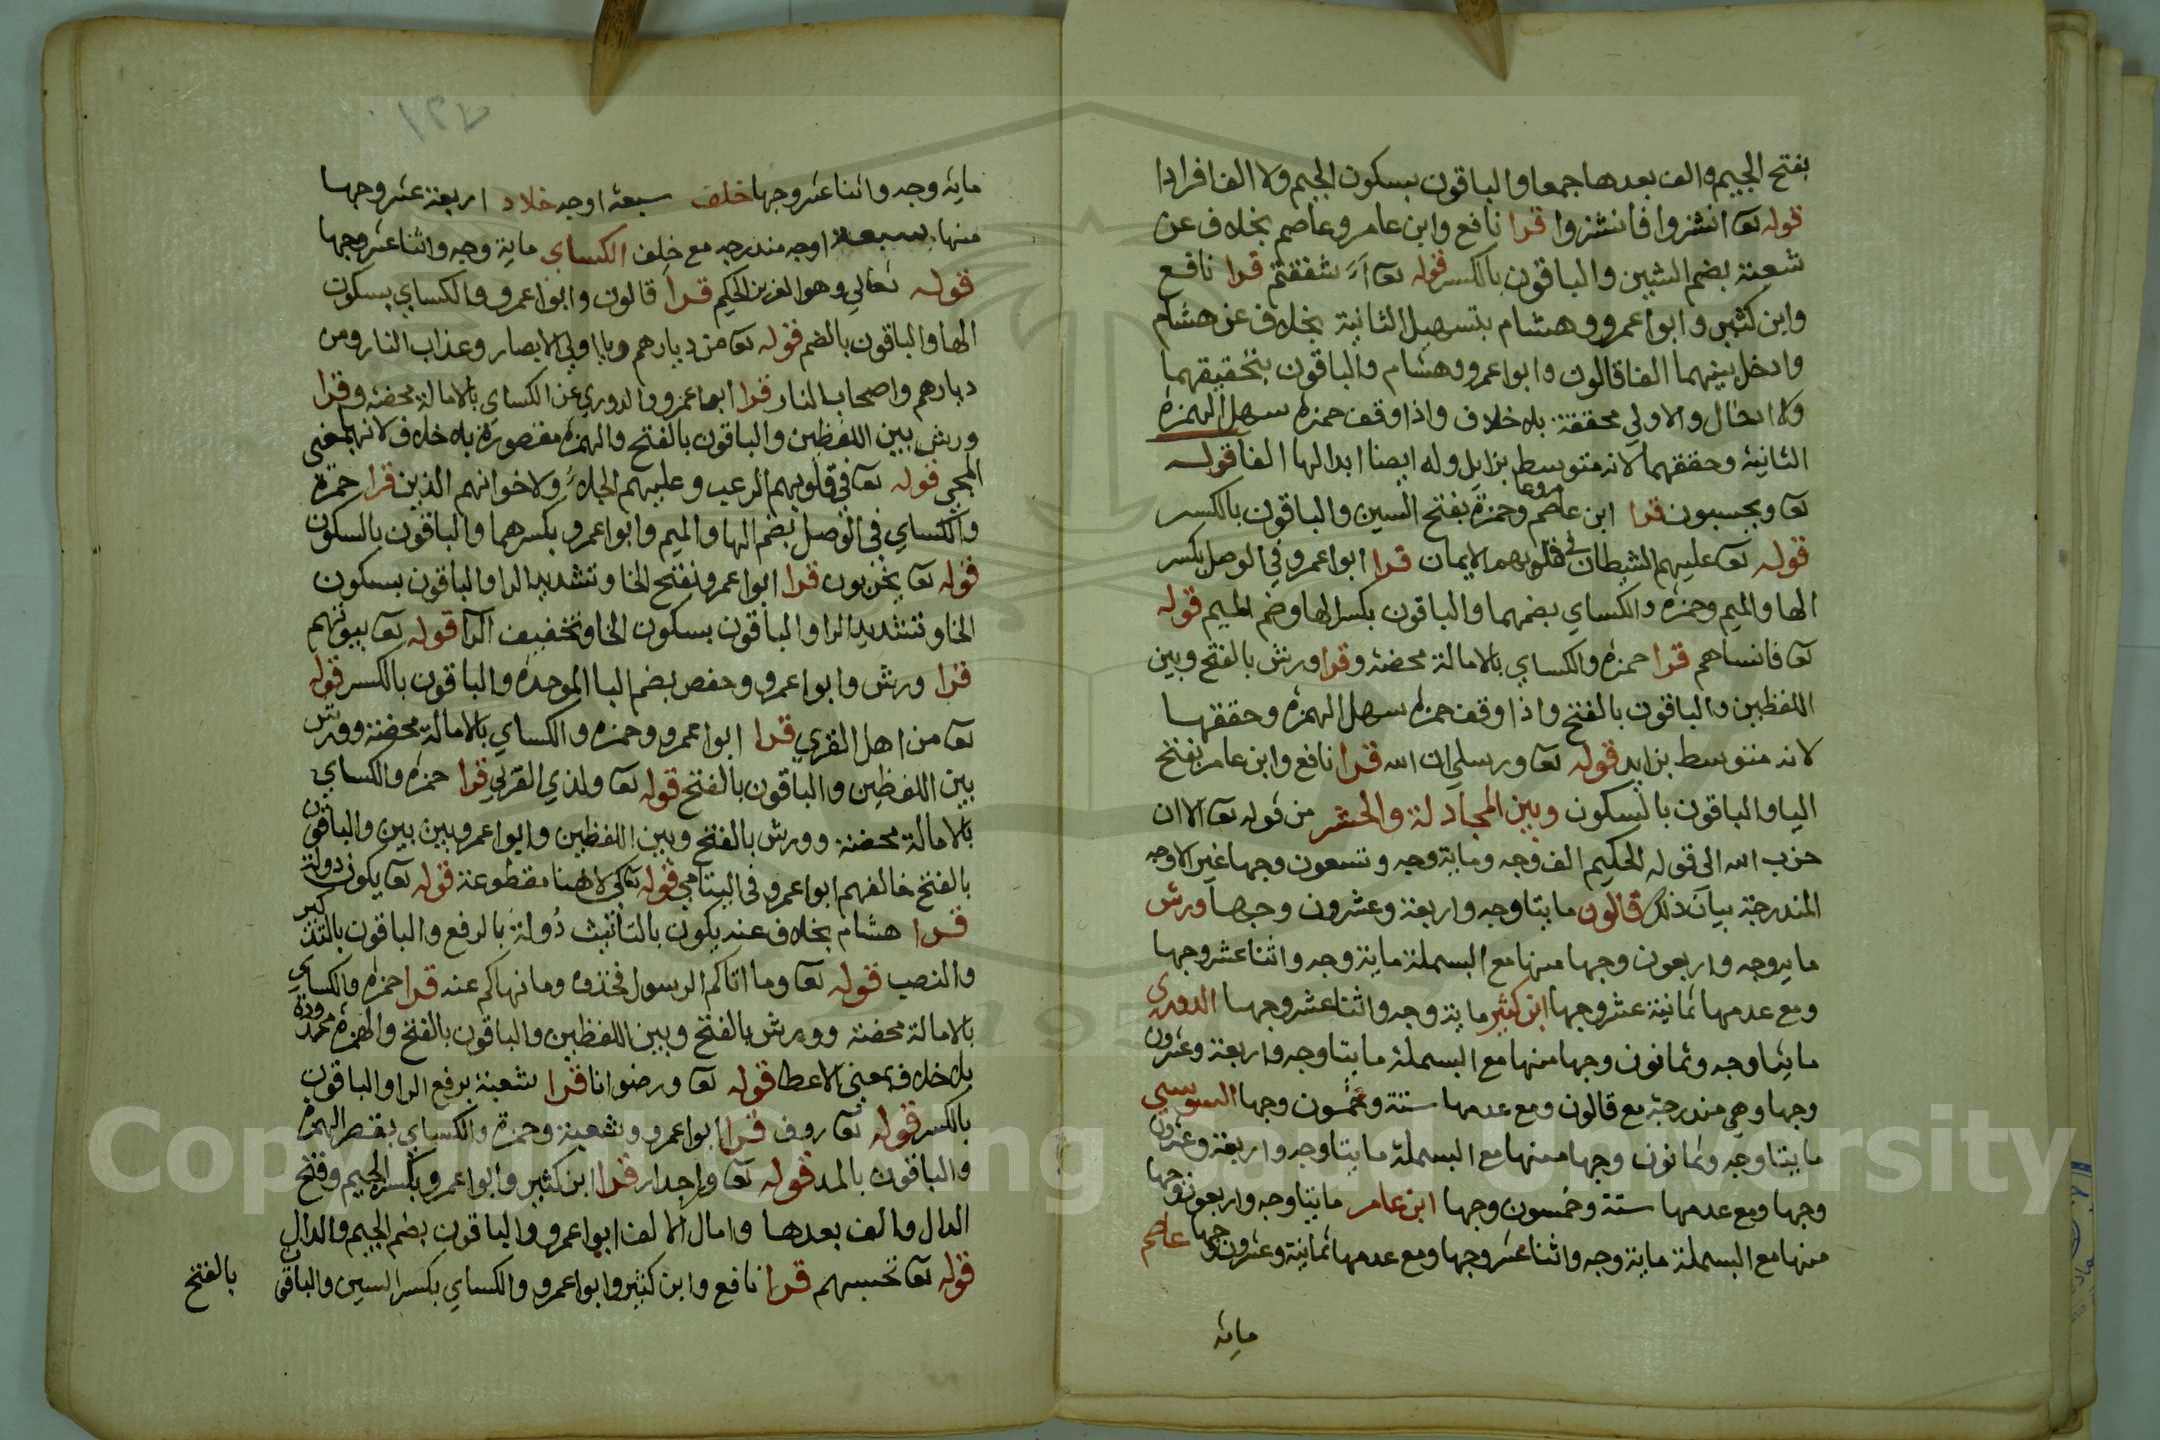 بفتح الجيم والف بعدها جمعا والباقون بسكون الجيم ولا الف افرادا
قوله تعا انشزوا فانشزوا قرا نافع وابن عامر وعاصم بخلاف عن
شعبة بضم الشين والباقون بالكسر قوله تعا أأشفقتم قرا نافع
وابن كثير وابوا عمرو وهشام بتسهيل الثانية بخلاف عن هشام
وادخل بينهما الفا قالون وابوا عمرو وهشام والباقون بتحقيقهما
ولا ادخال والاولي محققة بلا خلاف واذا وقف حمزة سهل الهمزة
الثانية وحققهما لانه متوسط بزايد وله ايضا ابدالها الفا قوله
تعا ويحسبون قرا ابن عامر وعاصم وحمزة بفتح السين والباقون بالكسر
قوله تعا عليهم الشيطان في قلوبهم الايمان قرا ابوا عمرو في الوصل بكسر
الها والميم وحمزه والكساي بضمهما والباقون بكسر الها وضم الميم قوله
تعا فانساهم قرا حمزه والكساي بالامالة محضة وقرا ورش بالفتح وبين
اللفظين والباقون بالفتح واذا وقف حمزه سهل الهمزه وحققها
لانه متوسط بزايد قوله تعا ورسلي ان الله قرا نافع وابن عامر بفتح
اليا والباقون بالسكون وبين المجادلة والحشر من قوله تعا الا ان
حزب الله الى قوله الحكيم الف وجه وماية وجه وتسعون وجها غير الاوجه
المندرجة بيان ذلك قالون مايتا وجه واربعة وعشرون وجها ورش
ماية وجه واربعون وجها منها مع البسملة ماية وجه واثنا عشر وجها
ومع عدمها ثمانية عشر وجها ابن كثير ماية وجه واثنا عشر وجها الدوري
مايتا وجه وثمانون وجها منها مع البسملة مايتا وجه واربعة وعشرون
وجها وهي مندرجة مع قالون ومع عدمها ستة وخمسون وجها السوسي
مايتا وجه وثمانون وجها منها مع البسملة مايتا وجه واربعة وعشرون
وجها ومع عدمها ستة وخمسون وجها ابن عامر مايتا وجه واربعون وجها
منها مع البسملة ماية وجه واثنا عشر وجها ومع عدمها ثمانية وعشرون وجها عاصم
ماية
ماية وجه واثنا عشر وجها خلف سبعة اوجه خلاد اربعة عشر وجها
منها سبعة اوجه مندرجه مع خلف الكساي ماية وجه واثنا عشر وجها
قوله تعالي وهو العزيز الحكيم قرا قالون وابوا عمرو والكساي بسكون
الها والباقون بالضم قوله تعا من ديارهم ويا اولي الابصار وعذاب النار ومن
ديارهم واصحاب النار قرا ابوا عمرو والدوري عن الكساي بالامالة محضة وقرا
ورش بين اللفظين والباقون بالفتح والهمزة مقصورة بلا خلاف لانه بمعني
المجي قوله تعا في قلوبهم الرعب وعليهم الجلاء ولاخوانهم الذين قرا حمزة
والكساي في الوصل بضم الها والميم وابوا عمرو بكسرهما والباقون بالسكون
قوله تعا يخربون قرا ابوا عمرو بفتح الخا وتشديد الرا والباقون بسكون
الخا وتشديد الرا والباقون بسكون الخا وتخفيف الرا قوله تعا بيوتهم
قرا ورش وابوا عمرو وحفص بضم البا الموحده والباقون بالكسر قوله
تعا من اهل القري قرا ابوا عمرو وحمزه والكساي بالامالة محضة وورش
بين اللفظين والباقون بالفتح قوله تعا ولذي القربي قرا حمزه والكساي
بالامالة محضة وورش بالفتح وبين اللفظين وابوا عمرو بين بين والباقون
بالفتح خالفهم ابوا عمرو في اليتامي قوله تعا كي لا هنا مقطوعة قوله تعا يكون دولة
قرا هشام بخلاف عنه يكون بالتانيث دُولةٌ بالرفع والباقون بالتذكير
والنصب قوله تعا وما اتاكم الرسول فخذوه وما نهاكم عنه قرا حمزه والكساي
بالامالة محضة وورش بالفتح وبين اللفظين والباقون بالفتح والهمزة ممدودة
بلا خلاف بمعني الاعطا قوله تعا ورضوانا قرا شعبة برفع الرا والباقون
بالكسر قوله تعا روف قرا ابوا عمرو وشعبة وحمزة والكساي بقصر الهمزة
والباقون بالمد قوله تعا او جدار قرا ابن كثير وابوا عمرو بكسر الجيم وفتح
الدال والف بعدها وامال الالف ابوا عمرو والباقون بضم الجيم والدال
قوله تعا تحسبهم قرا نافع وابن كثير وابوا عمرو والكساي بكسر السين والباقون
بالفتح
Copyright © King Saud University